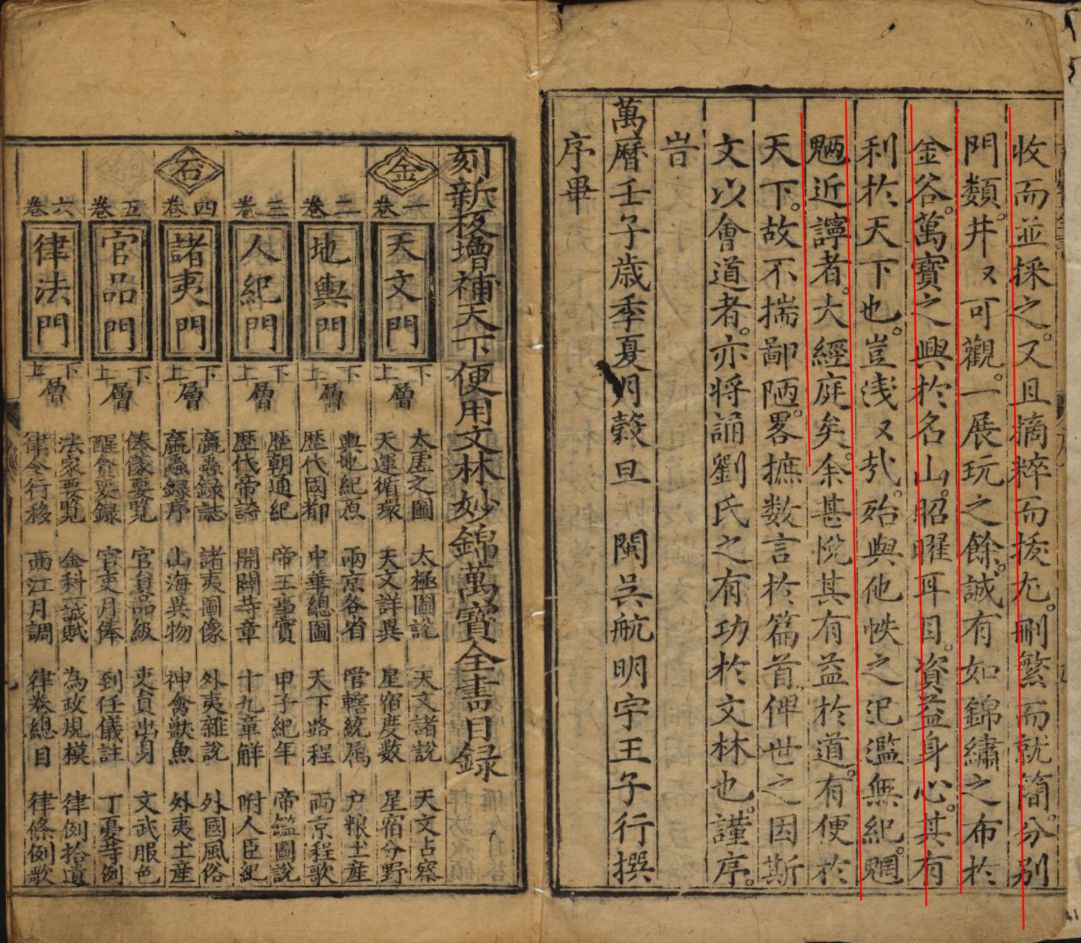 收而並採之又且摘粹而拔尤刪繁而就簡分別
門類井〻可觀一展玩之餘誠有如錦繡之布於
金谷萬寶之興於名山昭曜耳目資益身心其有
利於天下也豈淺〻哉殆與他帙之汜濫無紀
近
者大經庭矣余甚悅其有益於道有便於
天下故不揣鄙陋畧摭數言於篇首俾世之因斯
文以會道者亦將誦劉氏之有功於文林也謹序
旹
萬曆壬子歲季夏月穀旦 閩吳航明宇王子行撰
序畢
刻新板增補天下便用文林妙錦萬寶全書目錄
金
一卷 天文門 下層 太虛之圖 太極圖說 天文諸說 天文占察
上 天運循環 天文詳異 星宿度數 星宿分野
二卷 地輿門 下層 輿地紀原 兩京各省 管轄統屬 户粮土産
上 歷代國都 中華總圖 天下路程 兩京程歌
三卷 人紀門 下層 歷朝通紀 帝王事實 甲子紀年 帝鑑圖說
上 歷代帝詩 開闢寺章 十九章解 附人臣紀
石
四卷 諸夷門 下層 臝蟲錄誌 諸夷圖像 外夷雜說 外國風俗
上 臝蟲錄序 山海異物 神禽獸魚 外夷土産
五卷 官品門 下層 俸祿要覽 官員品級 吏員出身 文武服色
上 醒貪要錄 官吏月俸 到任儀註 丁憂等例
六卷 律法門 下層 法家要覽 金科誡賦 為政規模 律例拾遺
上 律令行移 西江月調 律卷總目 律條例歌